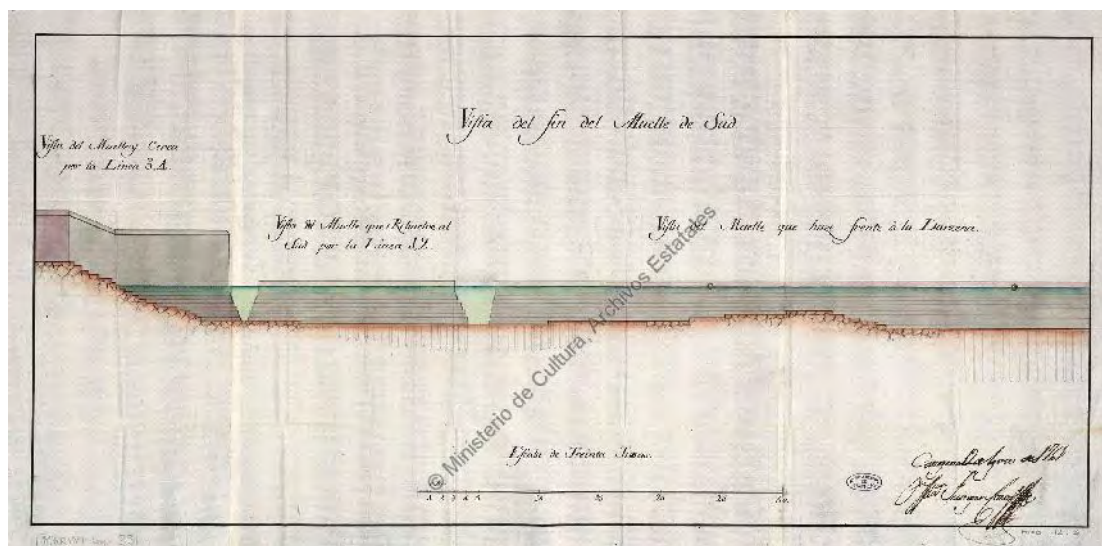 Vista del fin del Muelle de Sud
Vista del Muelle y Cerca
por la Linea 3.4.
Vista del Muelle que Rebuelve al
Sud por la Linea
Vista del Muelle que hace frente à la Darzena.
© Ministerio de Cultura, Archivos Estatales
Escala de Treinta
1 2 3 4 5 10 15 20 25 30
de 1761